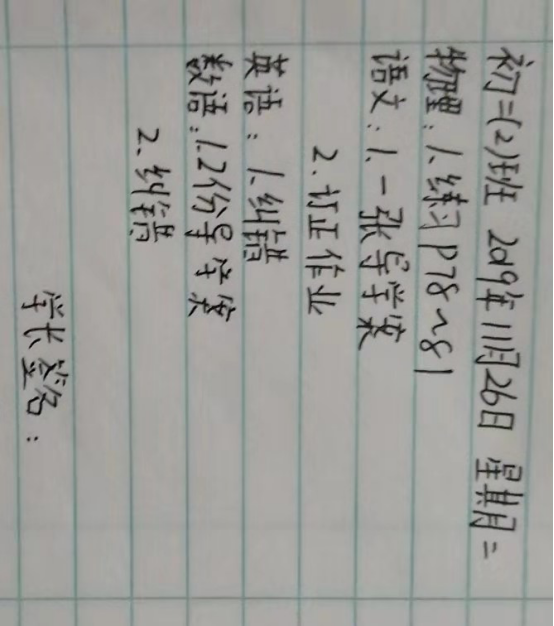 初二(2)班 2019年11月26日 星期二
物理:1.练习P78~81
语文:1.一张导学案
2.订正作业
英语:1.纠错
数语:1.2份导学案
2.纠错
学长签名: